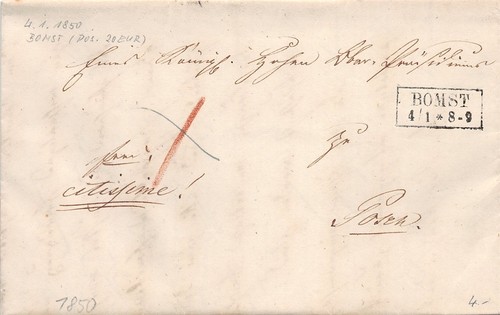 4. 1. 1850
BOMST (POS. 20 EUR)
Eines Königl. Hohen Ober-Präsidiums
BOMST
4/1 * 8-9
frei,
zu
citissime!
Posen.
1850
4.-